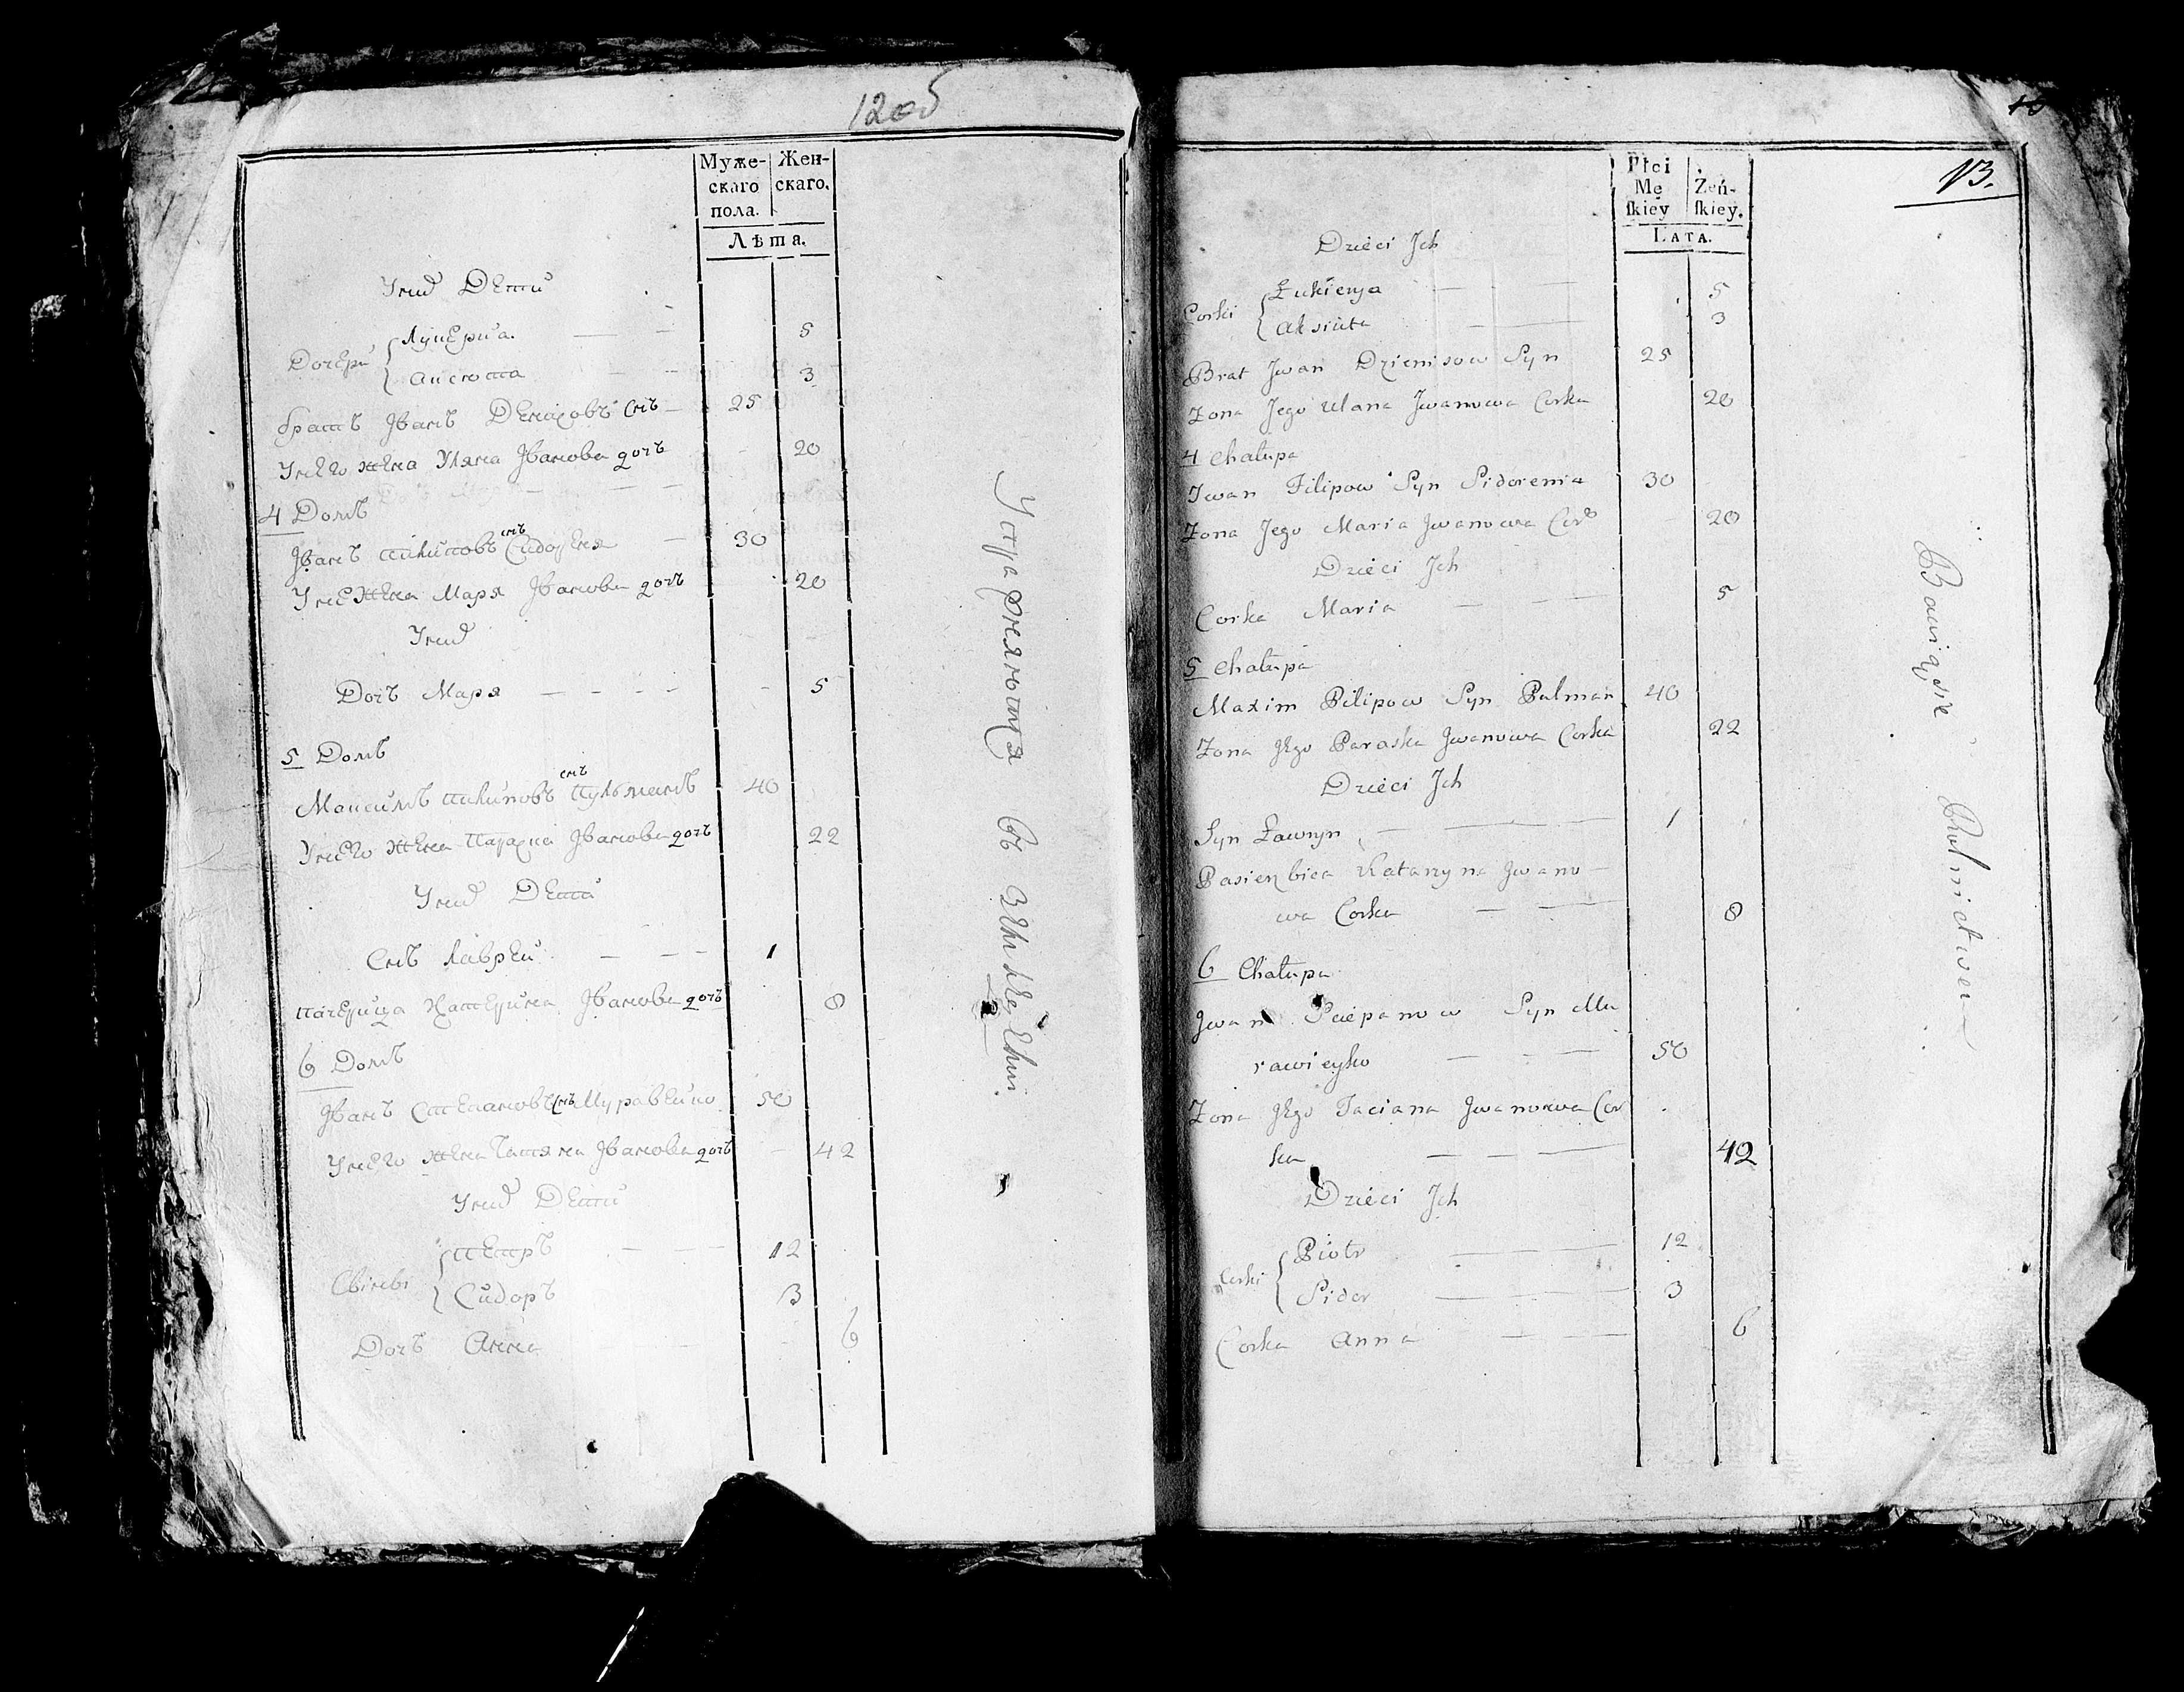 12об
Муже- Жен-
скаго скаго.
пола.
Лѣта.
У них Дети
Дочери Лукерия. 5
Аксюта 3
братъ Іванъ Денисовъ снъ 25
У него жена Уляна Іванова дочъ 20
4 Домъ
Іванъ Пилиповъ снъ Сидореня 30
У не жена Маря Іванова дочъ 20
У них
Дочъ Маря 5
5 Домъ
Максимъ Пилиповъ снъ Пульманъ 40
У него жена Параска Іванова дочъ 22
У них Дети
Снъ Лаврен 1
Пачерица Катерина Іванова дочъ 8
6 Домъ
Іванъ Степановъ снъ Муравейко 50
У него жена Татяна Іванова дочъ 42
У них Дети
Петръ 12
Сидоръ 3
Дочъ Анна 6
13.
Płci
Mę Żeń-
ſkiey ſkiey.
LATA.
Dzieci Jch
Corki Łukierya 5
Aksiuta 3
Brat Jwan Dzienisow Syn 25
Zona Jego Ulana Jwanowa Corka 20
4 Chałupa
Jwan Filipow Syn Sidorenia 30
Zona Jego Maria Jwanowa Cor 20
Dzieci Jch
Corka Maria 5
5 Chałupa
Maxim Pilipow Syn Pulman 40
Zona Jego Paraska Jwanowa Corka 22
Dzieci Jch
Syn Ławryn 1
Pasierzbica Katarzyna Jwano
wa Corka 8
6 Chałupa
Jwan Sciepanow Syn Mu
rawieyko 50
Zona Jego Taciana Jwanowa Cor
ka 42
Dzieci Jch
Corki Piotr 12
Sidor 3
Corka Anna 6